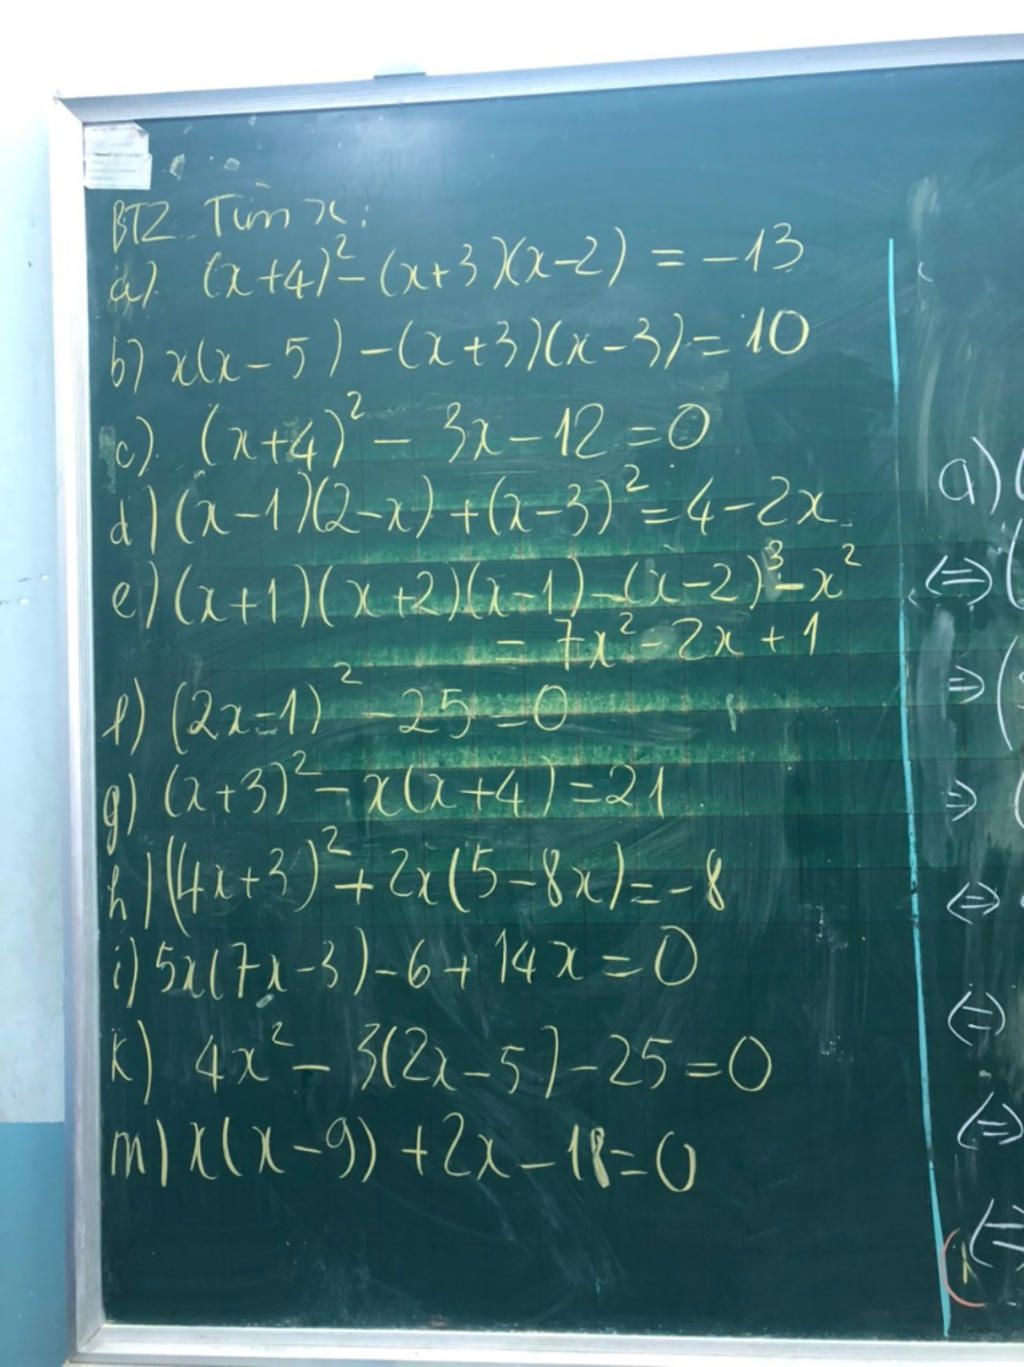 BT2 Tìm x:
a) (x+4)² - (x+3)(x-2) = -13
b) x(x-5) - (x+3)(x-3) = 10
c) (x+4)² - 3x - 12 = 0
d) (x-1)(2-x) + (x-3)² = 4 - 2x
e) (x+1)(x+2)(x-1) - (x-2)³ - x²
= 7x² - 2x + 1
f) (2x-1)² - 25 = 0
g) (x+3)² - x(x+4) = 21
h) (4x+3)² + 2x(5-8x) = -8
i) 5x(7x-3) - 6 + 14x = 0
k) 4x² - 3(2x-5) - 25 = 0
m) x(x-9) + 2x - 18 = 0
a) (
(=) (
=> (
=> (
(=)
(=)
(=)
(=)